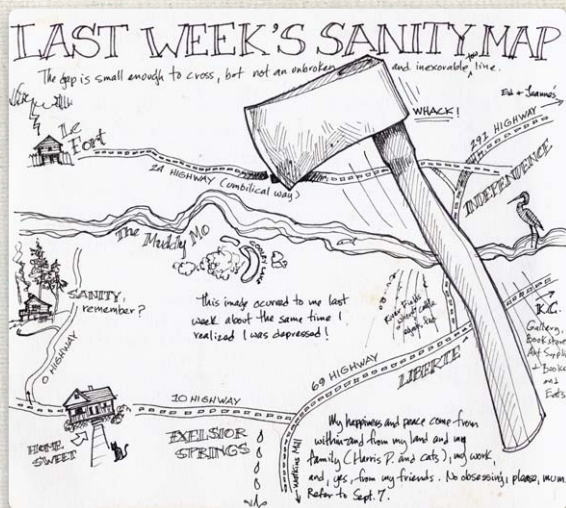 LAST WEEK'S SANITY MAP
The gap is small enough to cross, but not an unbroken and inexorable line.
Ed + Jeanne's
WHACK!
291 HIGHWAY
Le Fort
24 HIGHWAY (umbilical way)
INDEPENDENCE
The Muddy Mo
COOLEY LAKE
SANITY,
remember?
This image ocurred to me last
week about the same time I
realized I was depressed!
River Fields
K.C.
Gallery,
Bookstore
Art Supplies
+ Books
and
Eats
O HIGHWAY
69 HIGHWAY
LIBERTE
10 HIGHWAY
HOME,
SWEET
EXELSIOR
SPRINGS
Watkins Mill
My happiness and peace come from
within-and from my land and my
family (Harris P. and cats), my work,
and, yes, from my friends. No obsessing, please, mum.
Refer to Sept. 7.